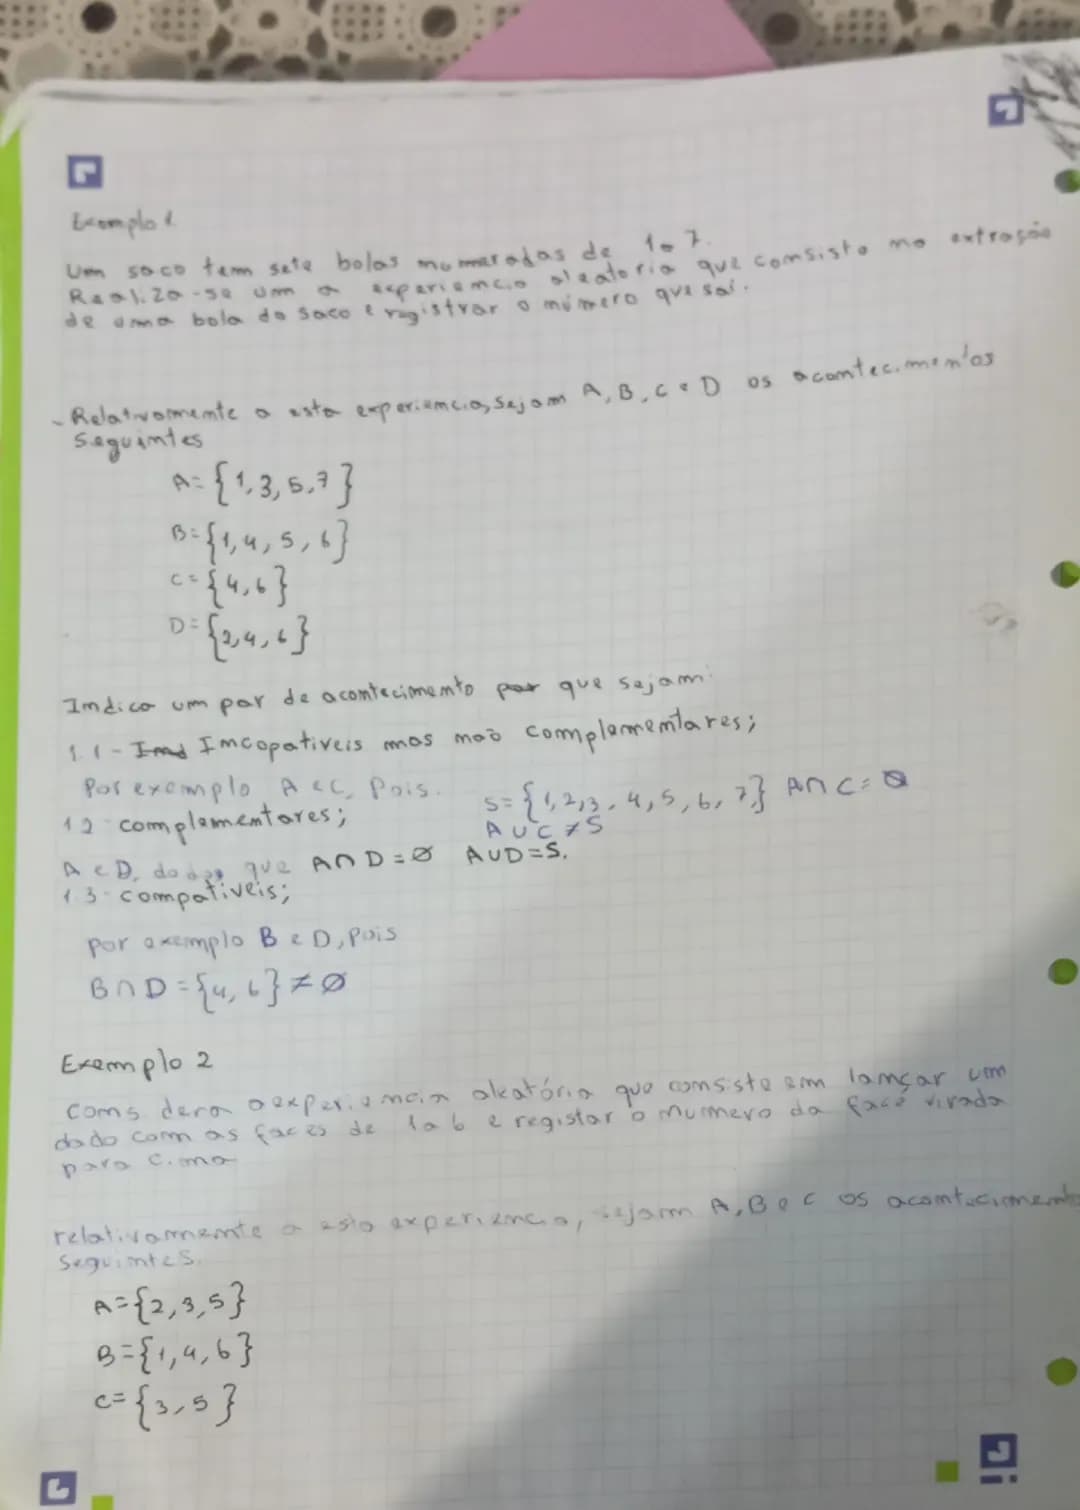 Exemplo 1
Um saco tem sete bolas numeradas de 1 a 7.
Realiza-se um a experiencia aleatoria que consisto na extração
de uma bola do saco e registrar o número que sai.
- Relativamente a esta experiencia, sejam A, B, C e D os acontecimentos
seguintes
A={1,3,5,7}
B={1,4,5,6}
C={4,6}
D={2,4,6}
Indica um par de acontecimento que sejam:
1.1- Imcopativeis mas não complementares;
Por exemplo A e C, Pois. S={1,2,3,4,5,6,7} A∩C=∅
A∪C≠S
1.2 complementares;
A e D, dados que A∩D=∅ A∪D=S.
1.3- compativeis;
por exemplo B e D, pois
B∩D={4,6}≠∅
Exemplo 2
Considera a experiencia aleatória que consiste em lançar um
dado com as faces de 1 a 6 e registar o numero da face virada
para cima
relativamente a esta experiencia, sejam A, B e C os acontecimento
Seguintes.
A={2,3,5}
B={1,4,6}
C={3,5}